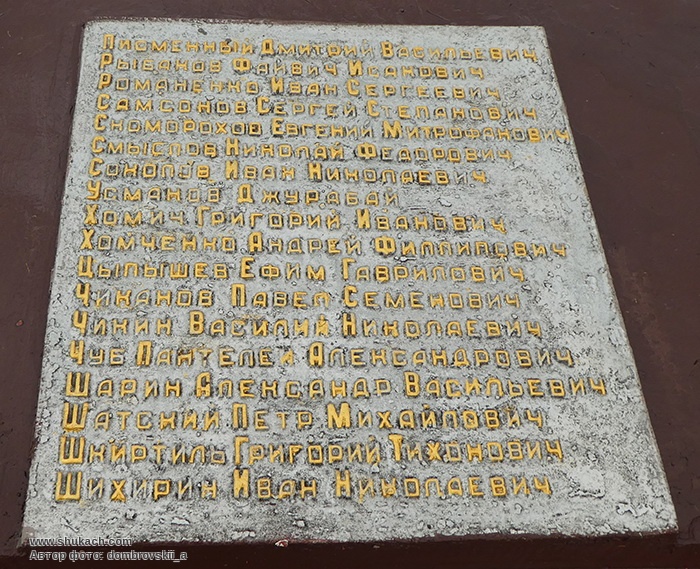 Писменный Дмитрий Васильевич
Рыбаков Файвич Исакович
Романенко Иван Сергеевич
Самсонов Сергей Степанович
Скоморохов Евгений Митрофанович
Смыслов Николай Федорович
Соколов Иван Николаевич
Усманов Джурабай
Хомич Григорий Иванович
Хомченко Андрей Филлипович
Цыпышев Ефим Гаврилович
Чиканов Павел Семенович
Чикин Василий Николаевич
Чуб Пантелей Александрович
Шарин Александр Васильевич
Шатский Петр Михайлович
Шкиртиль Григорий Тихонович
Шихирин Иван Николаевич
www.shukach.com
Автор фото: dombrovskii_a